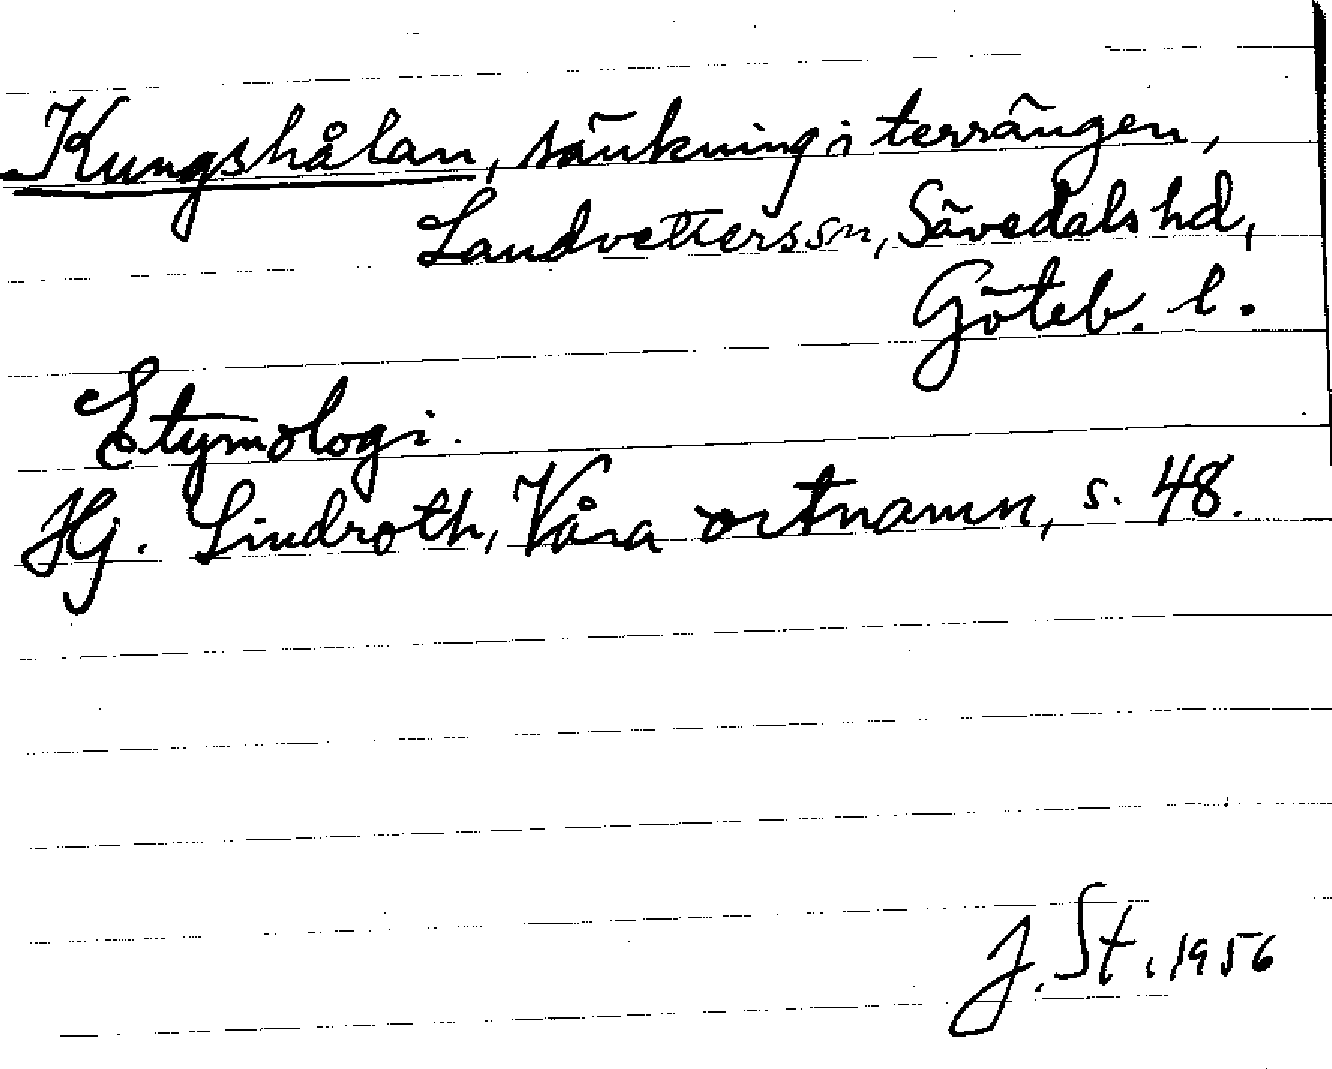 Kungshålan, sänkning i terrängen,
Landvetters sn, Sävedals hd,
Göteb. l.
Etymologi.
Hj. Lindroth, Våra ortnamn, s. 48.
J. St. 1956